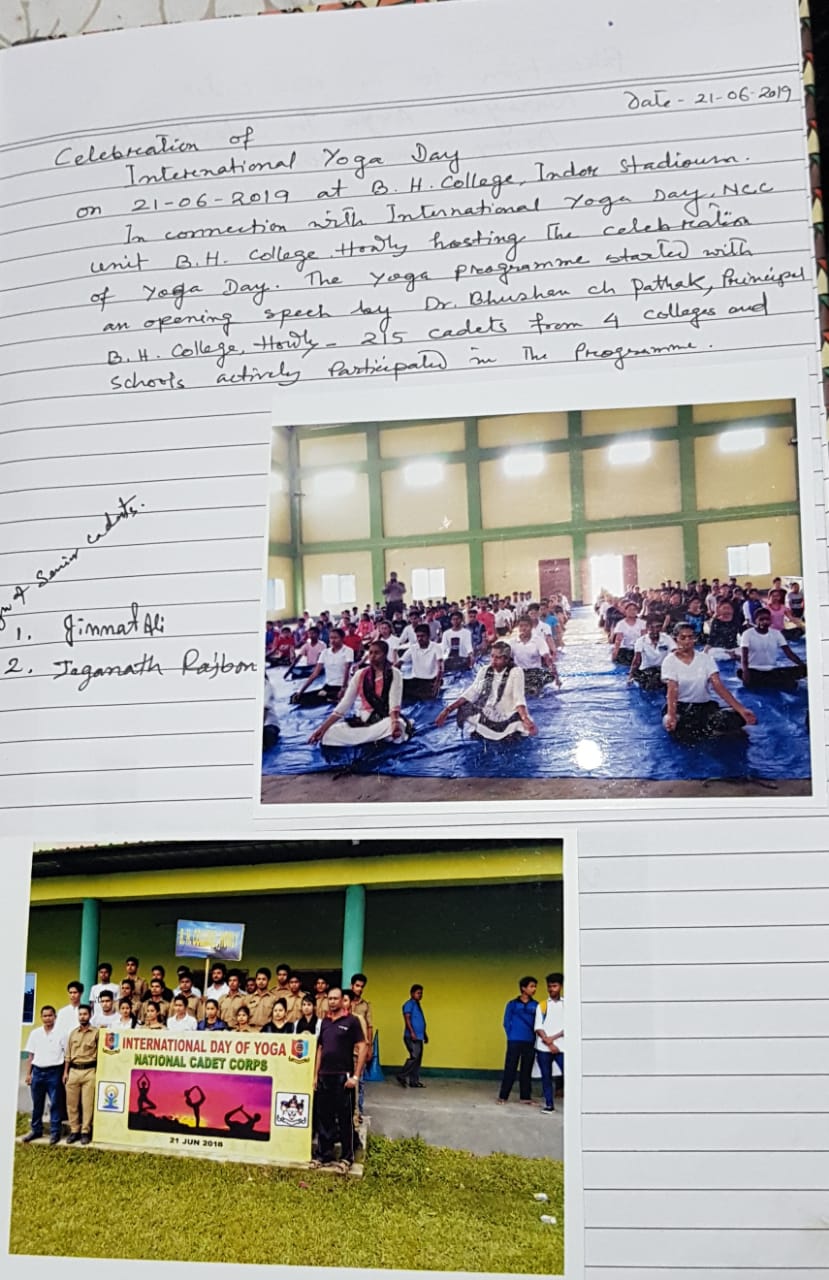 Date - 21-06-2019
Celebration of
International Yoga Day
on 21-06-2019 at B. H. College, Indor Stadioum.
In connection with International Yoga Day, NCC
unit B.H. College Howly hosting The celebration
of Yoga Day. The Yoga programme started with
an opening spech by Dr. Bhushan ch Pathak, Principal
B. H. College, Howly - 215 cadets from 4 colleges and
schools actively Participated in The Programme.
of Senior cadets.
1. Jinnat Ali
2. Jaganath Rajbon
INTERNATIONAL DAY OF YOGA
NATIONAL CADET CORPS
21 JUN 2018